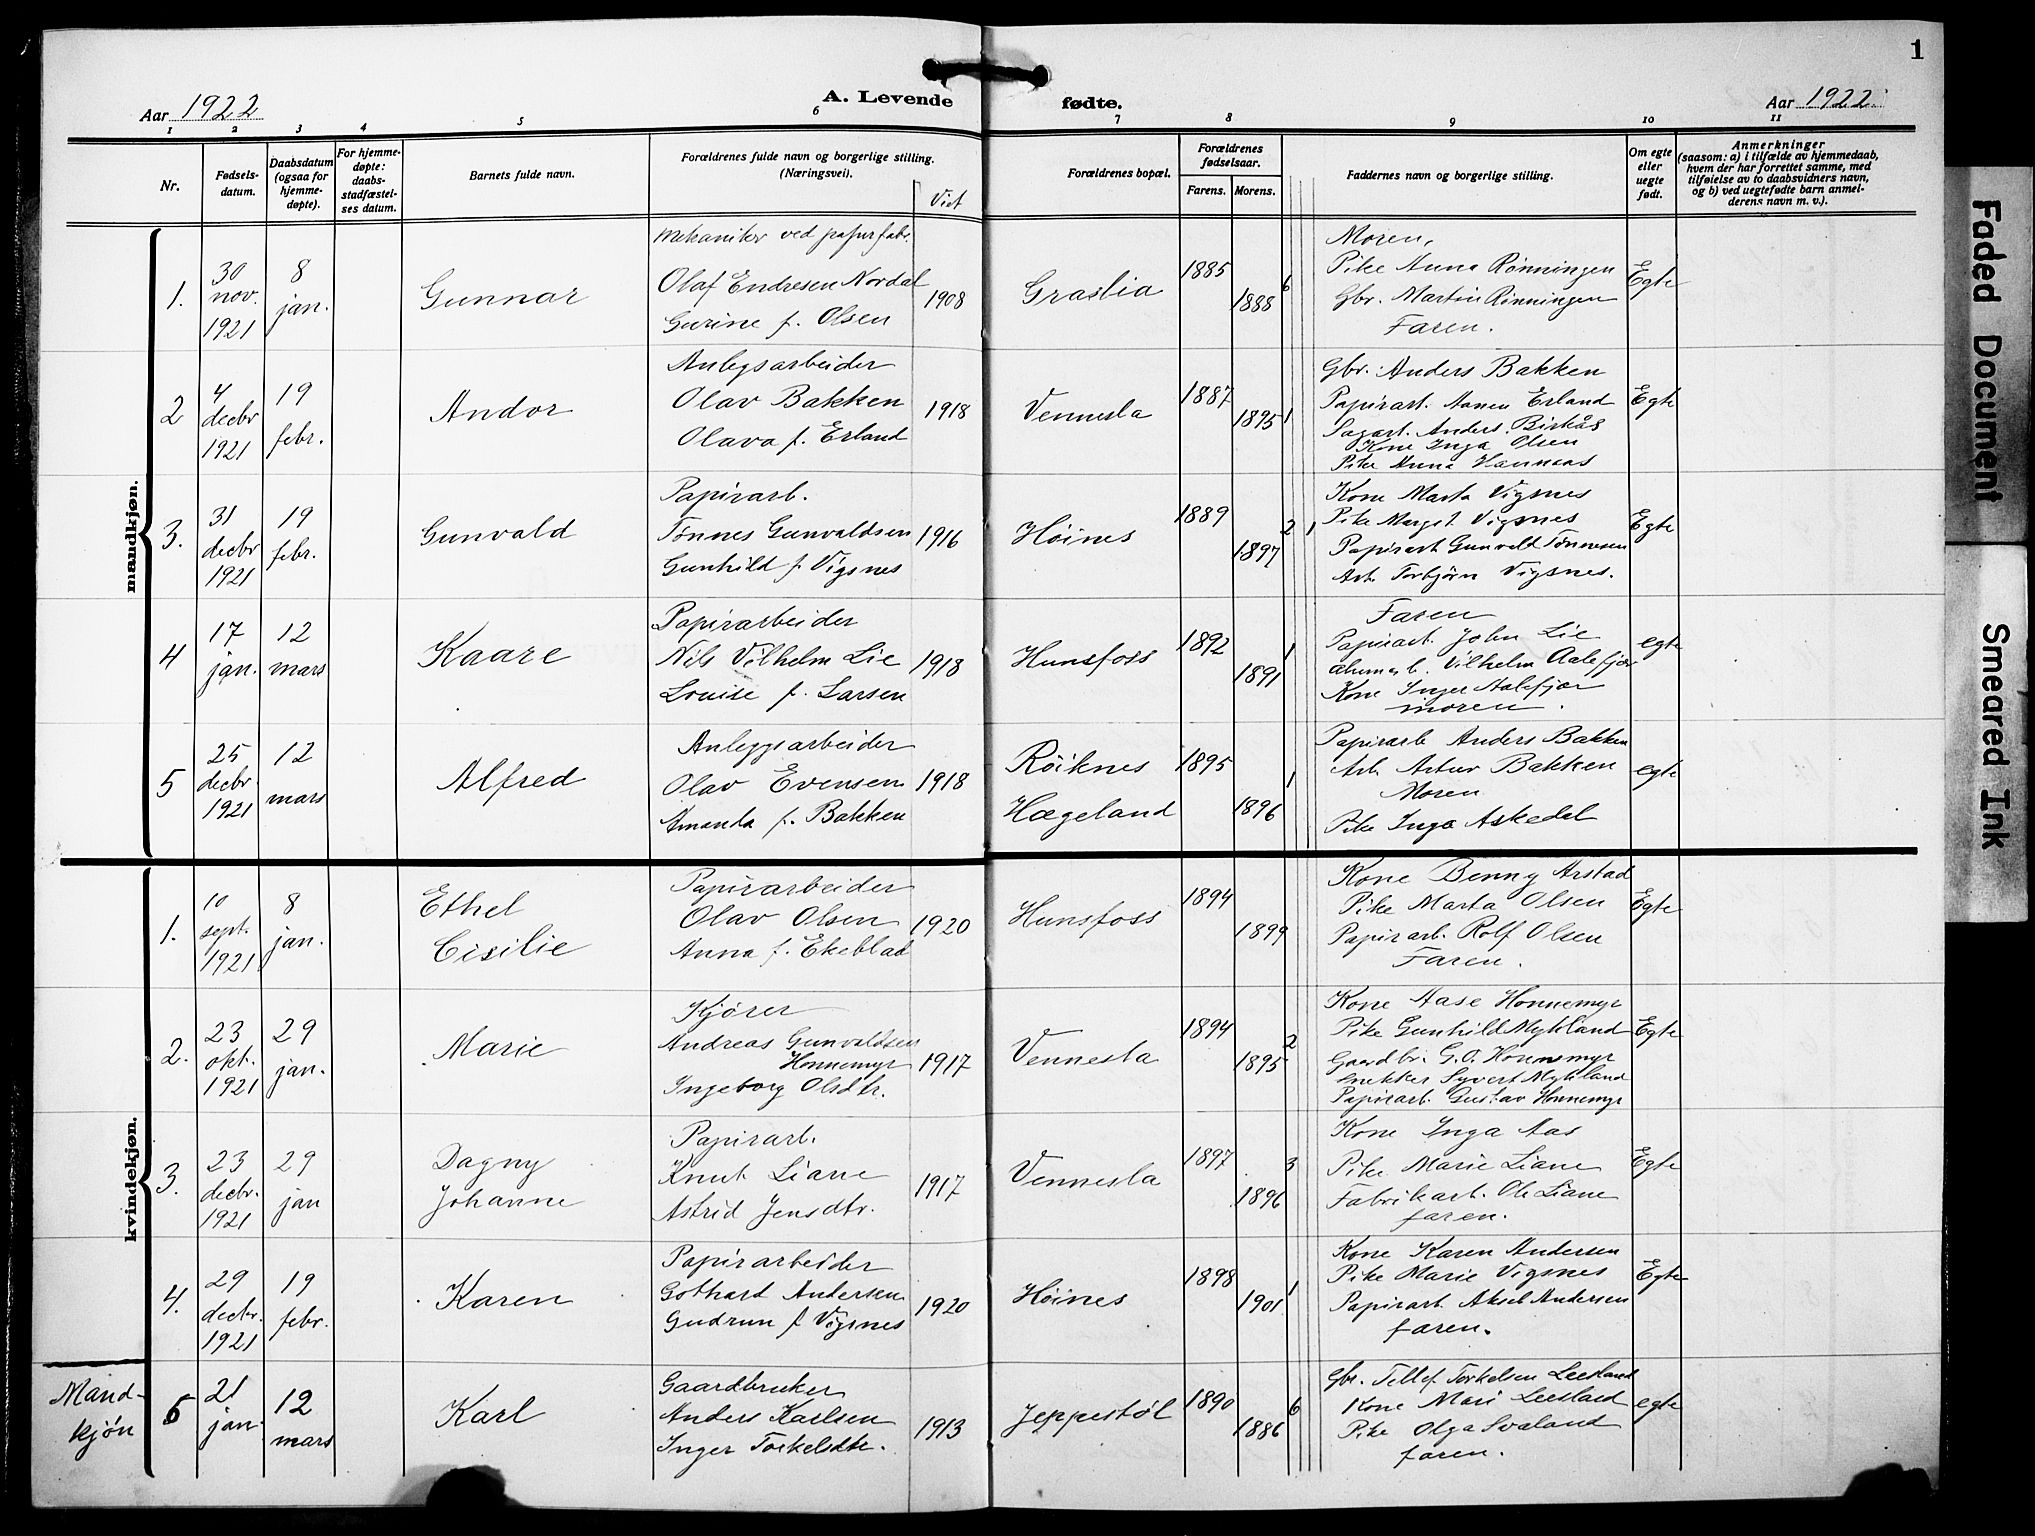 1
Aar 1922 A. Levende fødte. Aar 1922
1 2 3 4 5 6 7 8 9 10 11
Nr. Fødsels-datum. Daabsdatum (ogsaa for hjemme-døpte). For hjemme-døpte: daabs-stadfæstel-ses datum. Barnets fulde navn. Forældrenes fulde navn og borgerlige stilling. (Næringsvei). Viet Forældrenes bopæl. Forældrenes fødselsaar. Farens. Morens. Faddernes navn og borgerlige stilling. Om egte eller uegte født. Anmerkninger (saasom: a) i tilfælde av hjemmedaab, hvem der har forrettet samme, med tilføielse av to daabsvidners navn, og b) ved uegtefødte barn anmel-derens navn m. v.).
mandkjøn.
1. 30 nov. 1921 8 jan. Gunnar
Mekaniker ved papirfabr.
Olaf Endresen Nordal
Gurine f. Olsen
1908 Graslia 1885 1888 6
Moren,
Pike Anna Rønningen
Gbr. Martin Rønningen
Faren.
Egte
2 4 decbr 1921 19 febr. Andor
Anlegsarbeider
Olav Bakken
Olava f. Erland
1918 Vennesla 1887 1895 1
Gbr. Anders Bakken
Papirarb. Aanen Erland
Sagarb. Anders Birkås
Kone Inga Olsen
Pike Anna Hannaas
Egte
3. 31 decbr 1921 19 febr. Gunvald
Papirarb.
Tønnes Gunvaldsen
Gunhild f. Vigsnes
1916 Høines 1889 1897 2 1
Kone Marta Vigsnes
Pike Margit Vigsnes
Papirarb Gunvald Tønnesen
Arb. Torbjørn Vigsnes.
Egte
4 17 jan. 12 mars Kaare
Papirarbeider
Nils Vilhelm Lie
Louise f. Larsen
1918 Hunsfoss 1892 1891 1
Faren
Papirarb. John Lie
Vilhelm Aalefjær
Kone Inger Aalefjær
moren.
egte
5 25 decbr. 1921 12 mars Alfred
Anleggsarbeider
Olav Evensen
Amanda f. Bakken
1918 Røiknes Hægeland 1895 1896 1
Papirarb Anders Bakken
Arb. Artur Bakken
Moren
Pike Inga Askedal
egte
kvindekjøn.
1. 10 sept. 1921 8 jan. Ethel Cisilie
Papirarbeider
Olav Olsen
Anna f. Ekeblad
1920 Hunsfoss 1894 1899
Kone Benny Arstad
Pike Marta Olsen
Papirarb. Rolf Olsen
Faren.
Egte
2. 23 okt. 1921 29 jan. Marie
Kjører
Andreas Gunvaldsen
Honnemyr
Ingeborg Olsdtr.
1917 Vennesla 1894 1895 2
Kone Aase Honnemyr
Pike Gunhild Mykland
Gaardbr. G.O. Honnemyr
Snekker Syvert Mykland
Papirarb. Gustav Honnemyr
Egte
3. 23 decbr. 1921 29 jan Dagny Johanne
Papirarb.
Knut Liane
Astrid Jensdtr.
1917 Vennesla 1897 1896 3
Kone Inga Aas
Pike Marie Liane
Fabrikarb. Ole Liane
faren.
Egte
4. 29 decbr. 1921 19 febr. Karen
Papirarbeider
Gothard Andersen
Gudrun f Vigsnes
1920 Høines 1898 1901 1
Kone Karen Andersen
Pike Marie Vigsnes
Papirarb. Aksel Andersen
faren.
Egte
Mand-kjøn
6 21 jan. 12 mars Karl
Gaardbruker
Anders Karlsen
Inger Torkelsdtr.
1913 Jeppestøl 1890 1886 6
Gbr. Tellef Torkelsen Leesland
Kone Mari Leesland
Pike Olga Svaland
faren.
egte
Faded Document
Smeared Ink